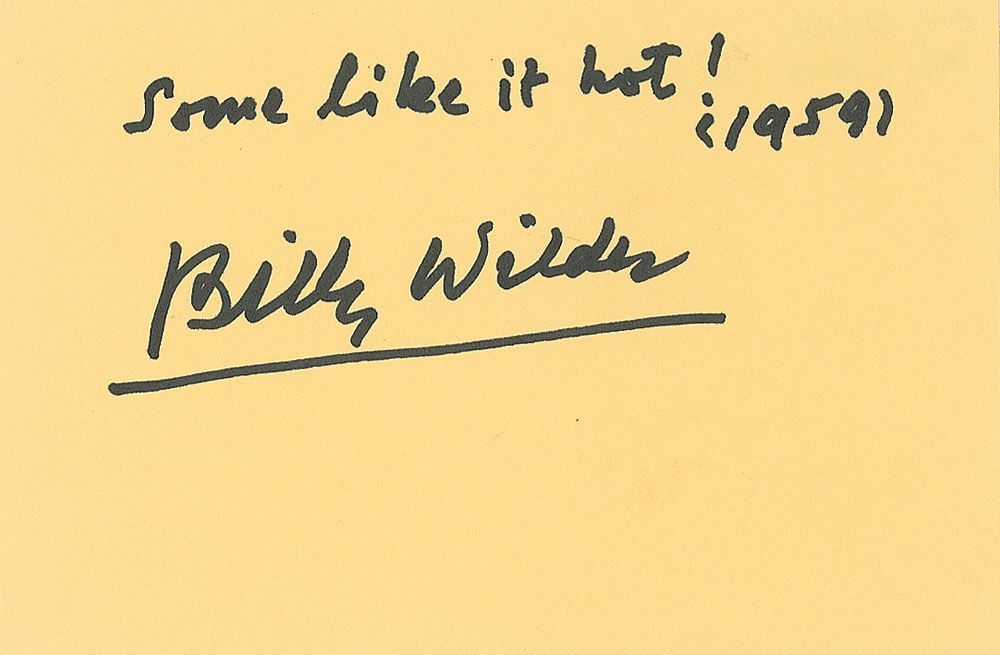 Some like it hot!
(1959)
Billy Wilder